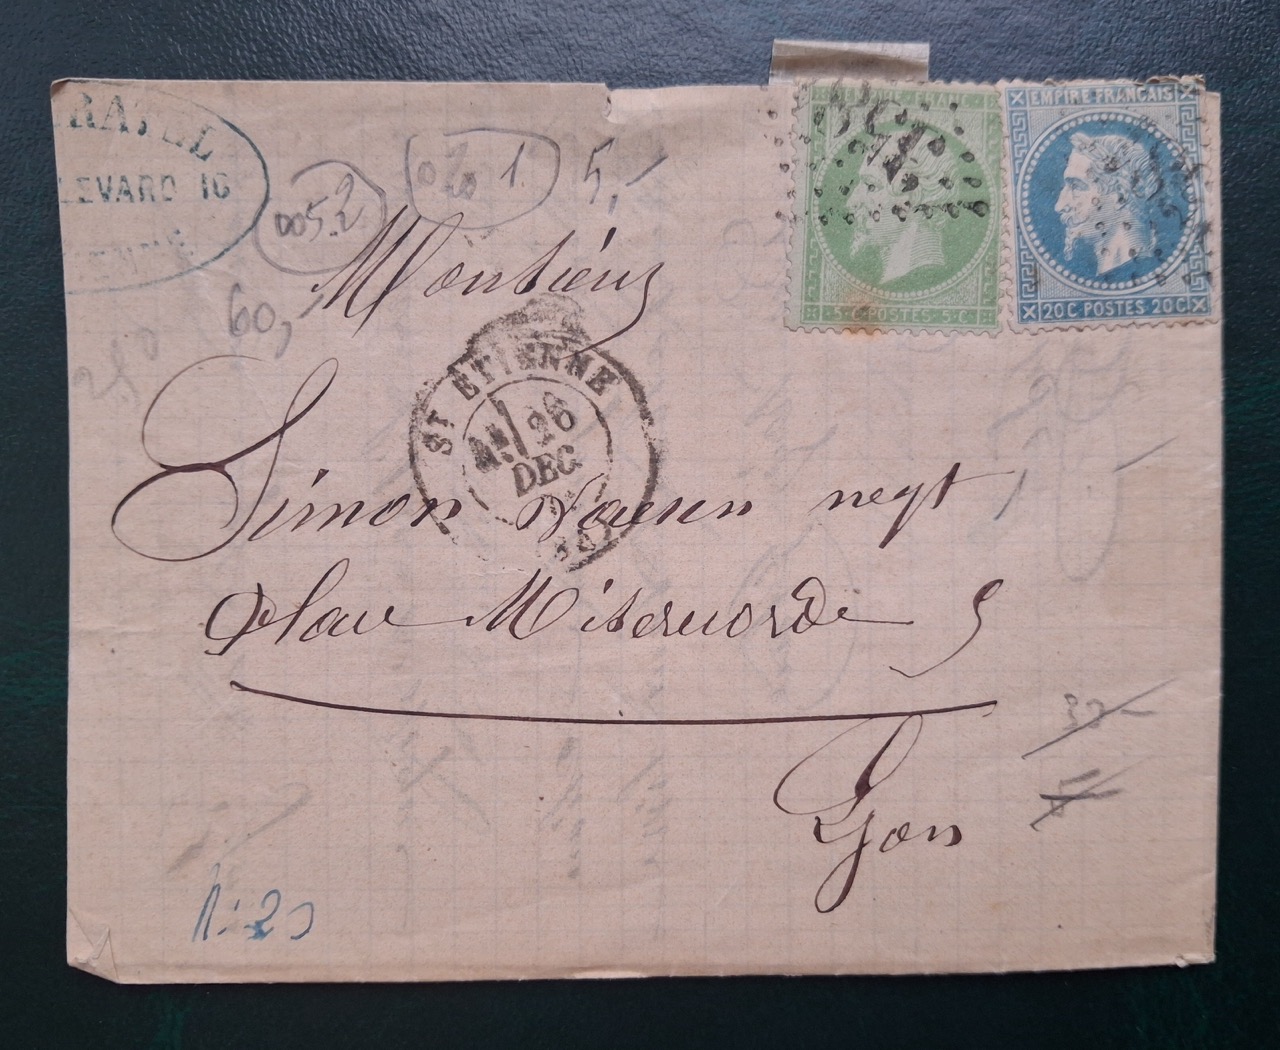 RATEL
LEVARD 10
0052
020 1.
5,-
60,-
EMPIRE FRANCAIS
5 C POSTES 5 C
EMPIRE FRANÇAIS
20C POSTES 20C
Monsieur
ST ETIENNE
26
DEC
Simon negt
Place Misericorde 5
Lyon
1:20